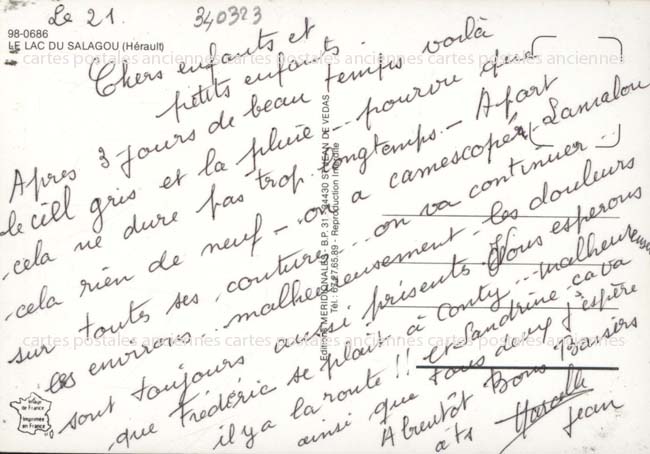 Le 21
340323
98-0686
LE LAC DU SALAGOU (Hérault)
Chers enfants et
petits enfants
Apres 3 jours de beau temps voilà
le ciel gris et la pluie - pourvu que
cela ne dure pas trop longtemps - A part
cela rien de neuf - on a camescopé Lamalou
sur toutes ses coutures on va continuer ..
les environs - malheureusement - les douleurs
sont toujours aussi présentes Nous esperons
que Frédéric se plait à Conty - malheureusement
il y a la route !! et Sandrine ca va
ainsi que tous deux J'espère
A bientôt Bons Baisers
à ts Marcelle
Jean
Editions MERIDIONALES - B.P. 31 - 34430 ST JEAN DE VEDAS
Tél.: 67.27.65.89 - Reproduction interdite
Imprimée
en France
cartes postales anciennes cartes postales anciennes cartes postales anciennes
cartes postales anciennes cartes postales anciennes cartes postales anciennes
cartes postales anciennes cartes postales anciennes cartes postales anciennes